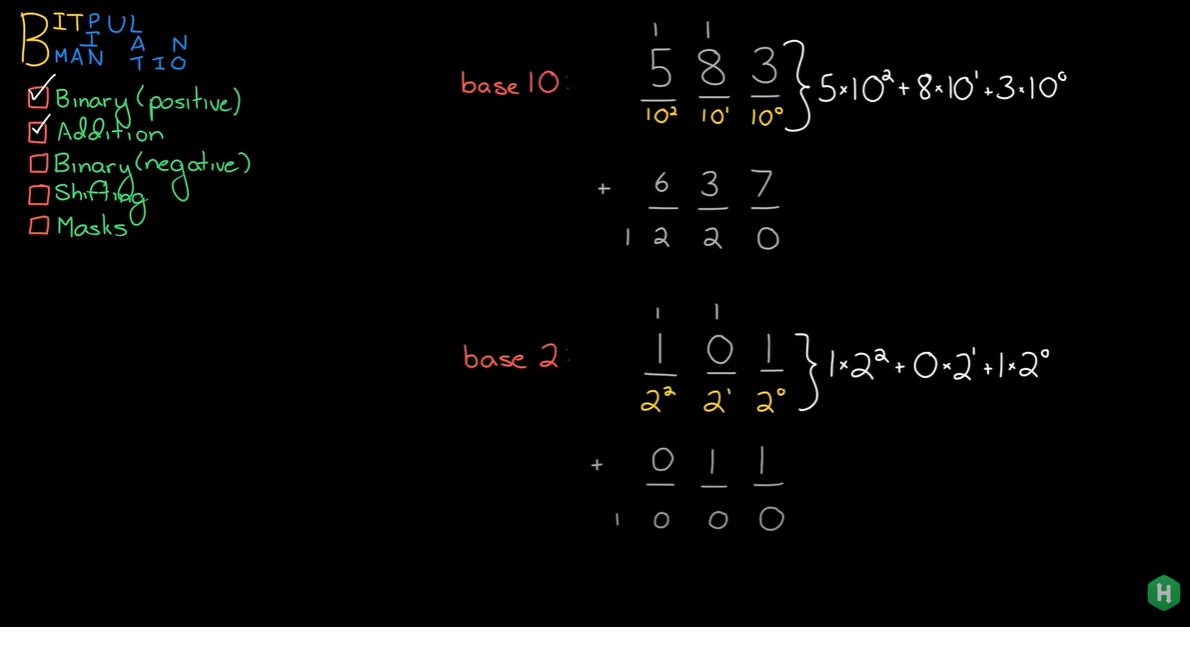 BIT MANIPULATION
☑ Binary (positive)
☑ Addition
☐ Binary (negative)
☐ Shifting
☐ Masks
base 10:
1 1
5 8 3 } 5×10² + 8×10¹ + 3×10⁰
10² 10¹ 10⁰
+ 6 3 7
1 2 2 0
base 2:
1 1
1 0 1 } 1×2² + 0×2¹ + 1×2⁰
2² 2¹ 2⁰
+ 0 1 1
1 0 0 0
H